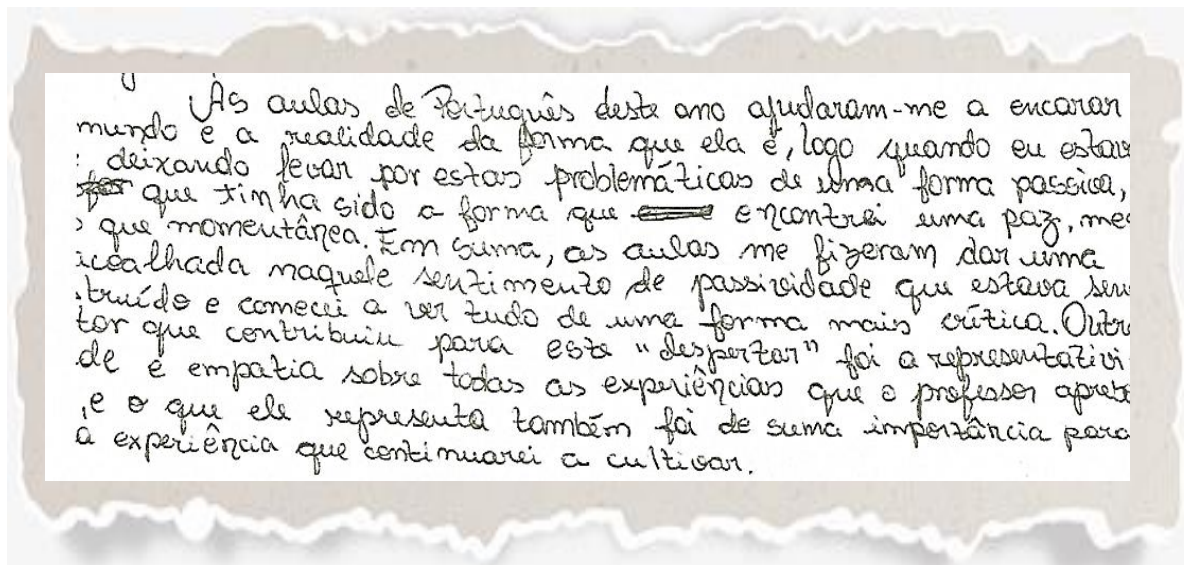 As aulas de Português deste ano ajudaram-me a encarar
mundo e a realidade da forma que ela é, logo quando eu estava
deixando levar por estas problemáticas de uma forma passiva,
que tinha sido a forma que encontrei uma paz, me
que momentânea. Em suma, as aulas me fizeram dar uma
icoalhada naquele sentimento de passividade que estava sen
truído e comecei a ver tudo de uma forma mais crítica. Outro
tor que contribuiu para este "despertar" foi a representativi
de e empatia sobre todas as experiências que o professor aprese
, e o que ele representa também foi de suma importância para
a experiência que continuarei a cultivar.